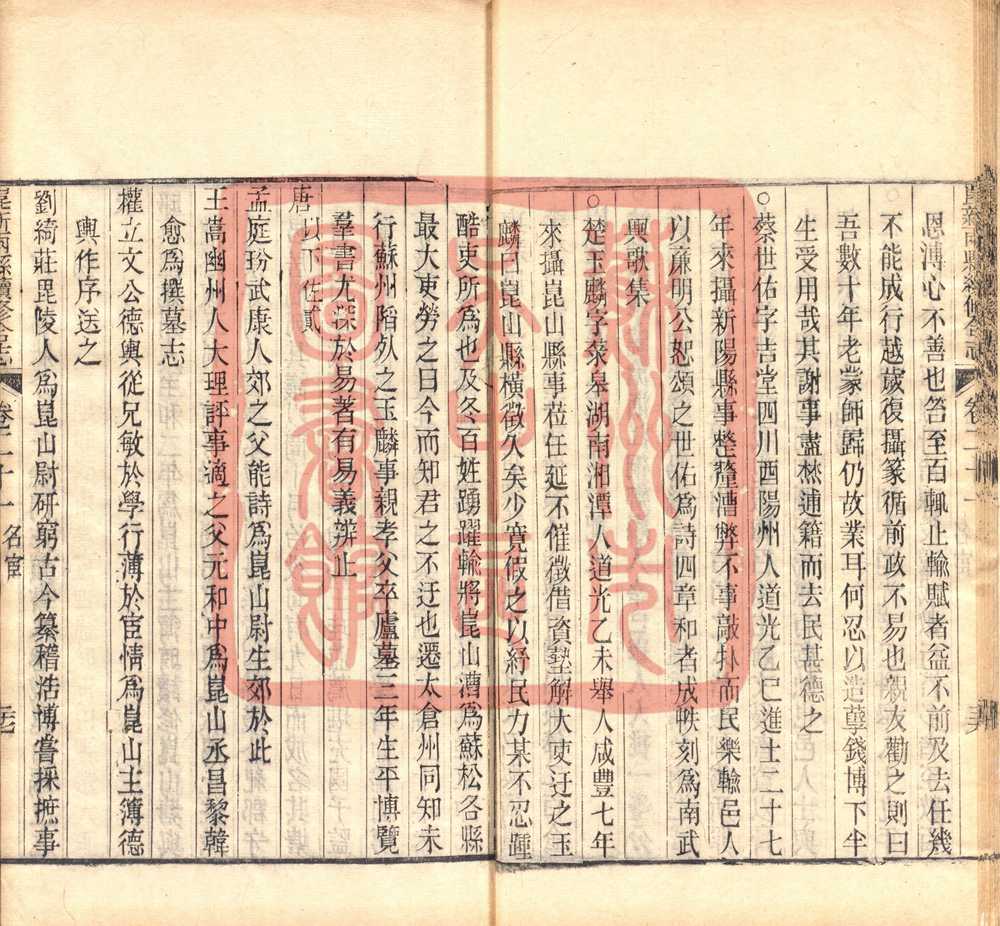 恩溥心不善也笞至百輒止輸賦者益不前及去任幾
不能成行越歲復攝篆循前政不易也親友勸之則曰
吾數十年老蒙師歸仍故業耳何忍以造孽錢博下半
生受用哉其謝事盡焚逋籍而去民甚德之
○蔡世佑字吉堂四川酉陽州人道光乙巳進士二十七
年來攝新陽縣事整釐漕弊不事敲扑而民樂輸邑人
以廉明公恕頌之世佑為詩四章和者成帙刻為南武
輿歌集
○楚玉麟字棻皋湖南湘潭人道光乙未舉人咸豐七年
來攝崑山縣事莅任延不催徵借資墊解大吏迂之玉
麟曰崑山縣橫徵久矣少寬假之以紓民力某不忍踵
酷吏所為也及冬百姓踴躍輸將崑山漕為蘇松各縣
最大吏勞之曰今而知君之不迂也遷太倉州同知未
行蘇州陷殀之玉麟事親孝父卒廬墓三年生平博覽
羣書尤深於易著有易義辨止
唐 以下佐貳
孟庭玢武康人郊之父能詩為崑山尉生郊於此
王嵩幽州人大理評事適之父元和中為崑山丞昌黎韓
愈為撰墓志
權立文公德輿從兄敏於學行薄於宦情為崑山主簿德
輿作序送之
劉綺莊毘陵人為崑山尉研窮古今纂稽浩博嘗採摭事
崑新兩縣續修合志 卷二十一 名宦